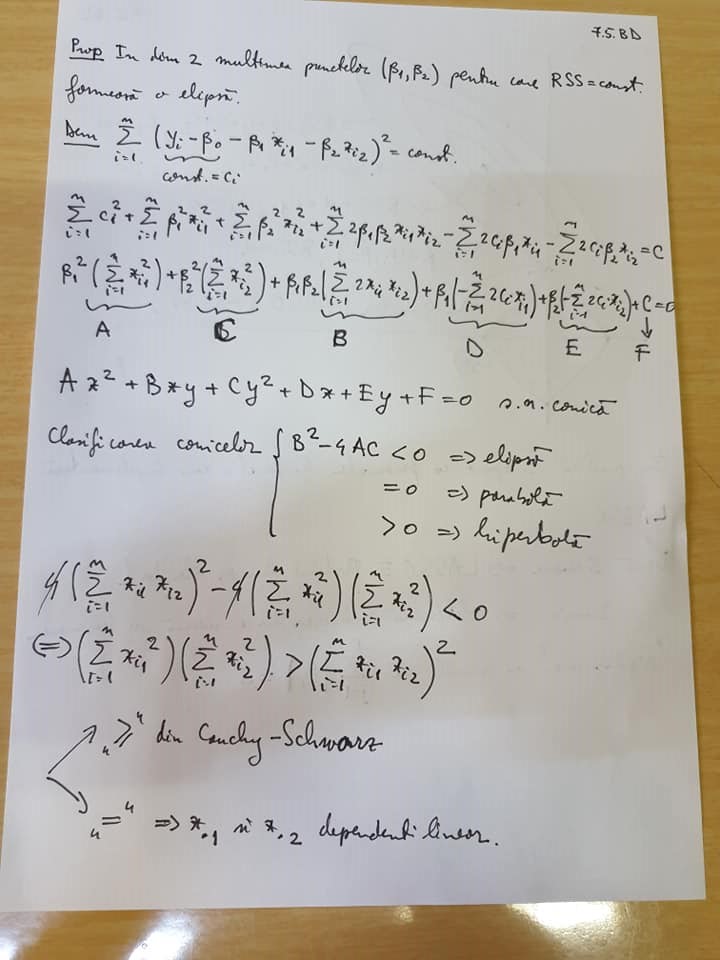 7.5.BD
Prop În dim 2 mulțimea punctelor (β₁, β₂) pentru care RSS = const.
formează o elipsă.
Dem ∑_{i=1}^{n} (y_i - β₀ - β₁ x_{i1} - β₂ x_{i2})² = const.
const. = c_i
∑_{i=1}^{n} c_i² + ∑_{i=1}^{n} β₁² x_{i1}² + ∑_{i=1}^{n} β₂² x_{i2}² + ∑_{i=1}^{n} 2β₁β₂ x_{i1} x_{i2} - ∑_{i=1}^{n} 2c_i β₁ x_{i1} - ∑_{i=1}^{n} 2c_i β₂ x_{i2} = C
β₁² (∑_{i=1}^{n} x_{i1}²) + β₂² (∑_{i=1}^{n} x_{i2}²) + β₁β₂ (∑_{i=1}^{n} 2x_{i1} x_{i2}) + β₁ (-∑_{i=1}^{n} 2c_i x_{i1}) + β₂ (-∑_{i=1}^{n} 2c_i x_{i2}) + C = 0
A C B D E F
Ax² + Bxy + Cy² + Dx + Ey + F = 0 s.n. conică
Clasificarea conicelor { B² - 4AC < 0 => elipsă
= 0 => parabolă
> 0 => hiperbolă
4(∑_{i=1}^{n} x_{i1} x_{i2})² - 4(∑_{i=1}^{n} x_{i1}²)(∑_{i=1}^{n} x_{i2}²) < 0
(=>) (∑_{i=1}^{n} x_{i1}²)(∑_{i=1}^{n} x_{i2}²) > (∑_{i=1}^{n} x_{i1} x_{i2})²
„≥" din Cauchy-Schwarz
„=" => x.₁ și x.₂ dependenti liniar.